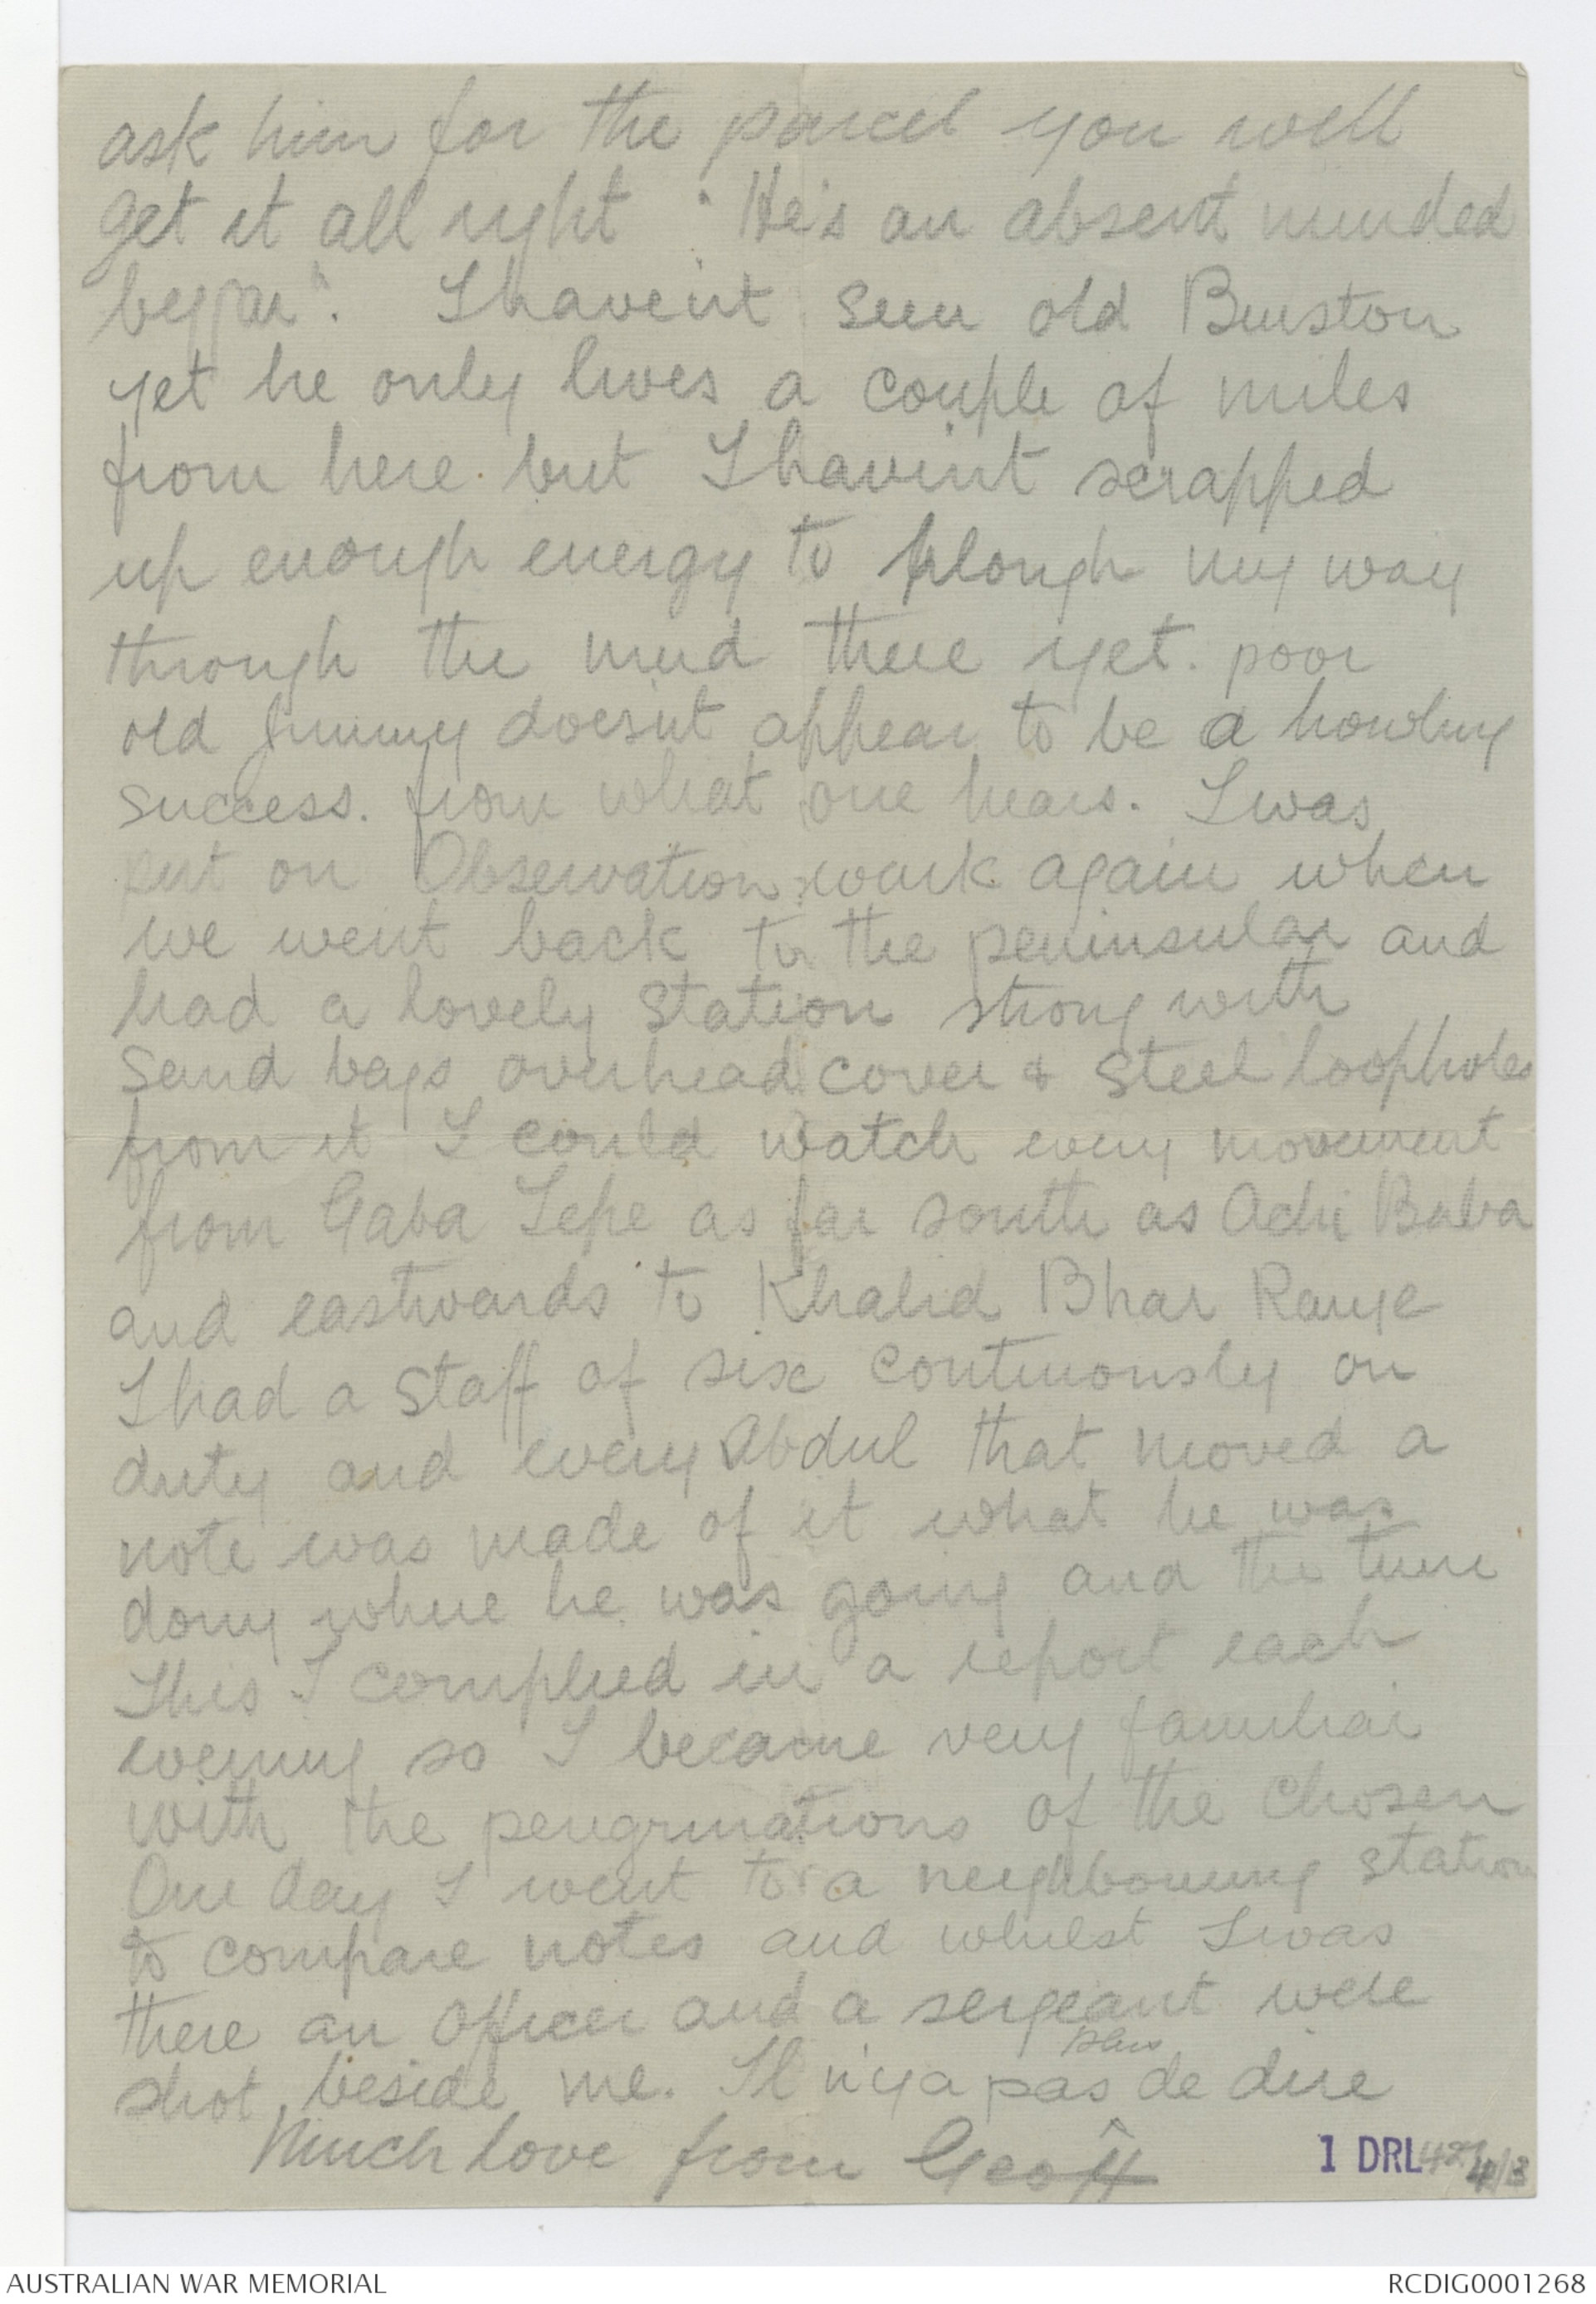 ask him for the parcel you will
get it all right "He's an absent minded
beggar". I havent seen old Burston
yet he only lives a couple of miles
from here but I havint scrapped
up enough energy to plough my way
through the mud there yet. poor
old Jimmy doesnt appear to be a howling
success. from what one hears. I was
put on Observation work again when
we went back to the peninsular and
had a lovely station strong with
sand bags overhead cover & steel loopholes
from it I could watch every movement
from Gaba Tepe as far south as Achi Baba
and eastwards to Khalid Bhar Range
I had a staff of six continously on
duty and every Abdul that moved a
note was made of it what he was
doing where he was going and the time
This I complied in a report each
evening so I became very familiar
with the perigrinations of the Chosen
One day I went to a neighbouring station
to compare notes and whilst I was
there an Officer and a sergeant were
shot beside me. Il n'y a pas plus de dire
Much love from Geoff
1 DRL 427 4/3
AUSTRALIAN WAR MEMORIAL
RCDIG0001268